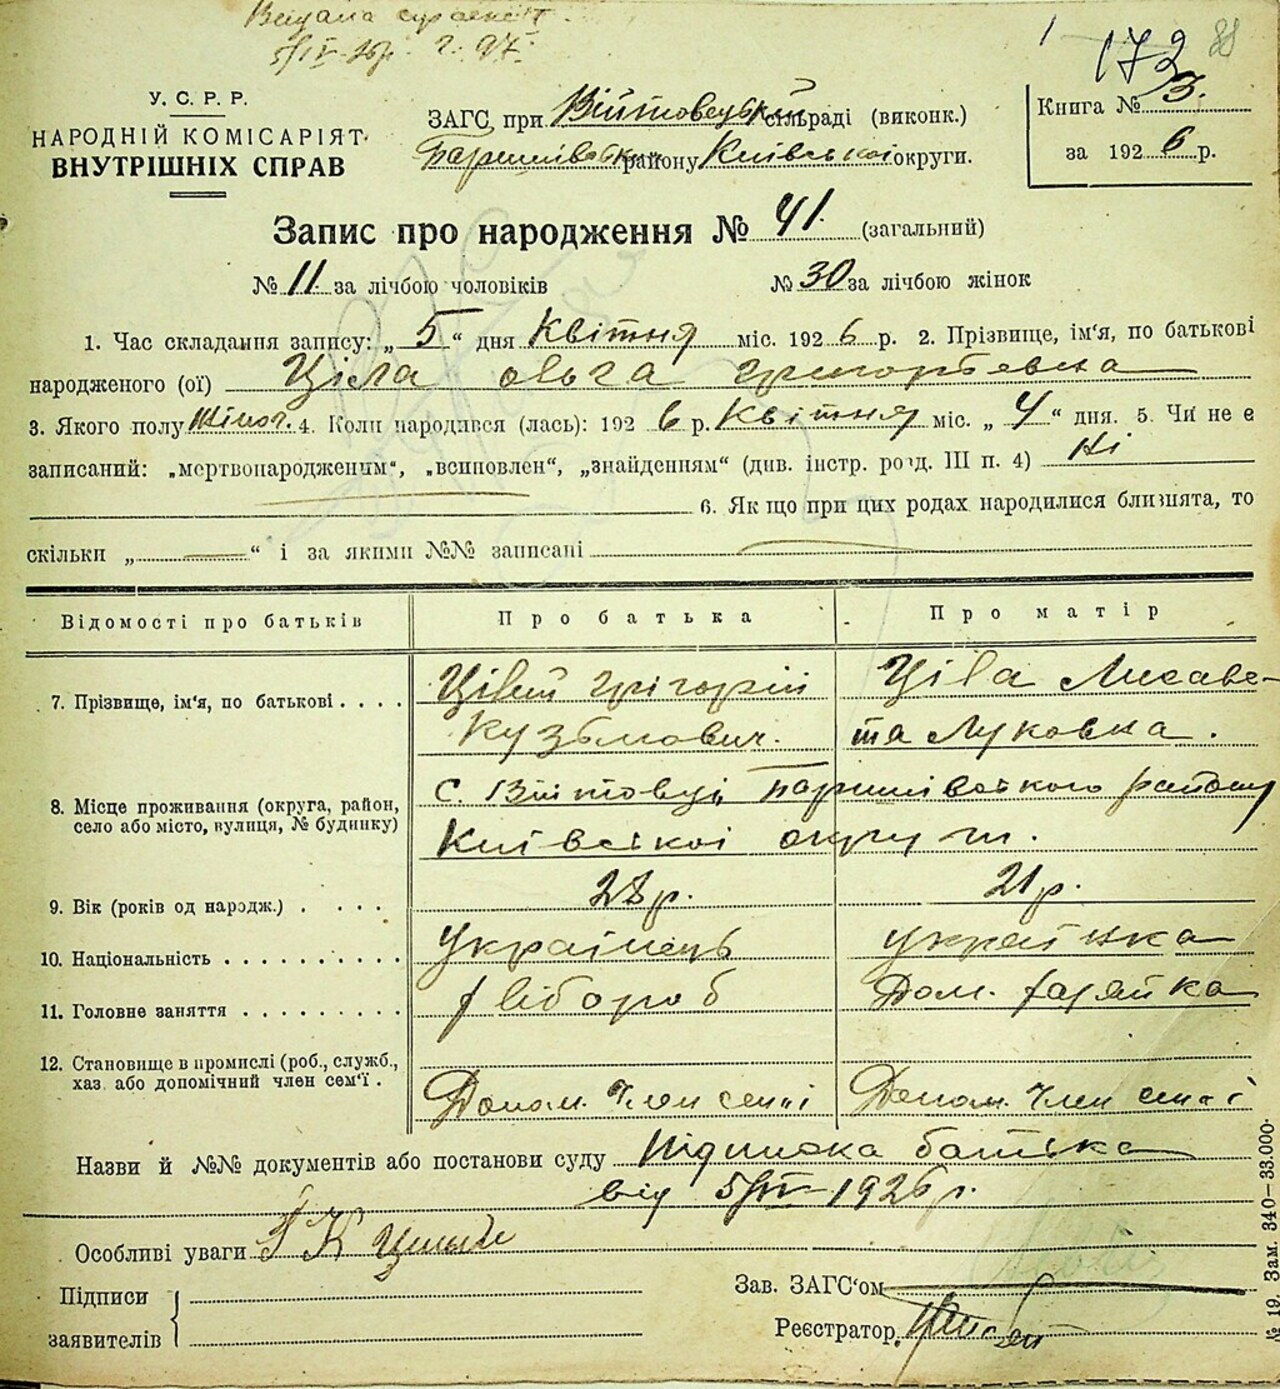 Видана
5/IV-26р.
172 88
У. С. Р. Р.
НАРОДНІЙ КОМІСАРІЯТ
ВНУТРІШНІХ СПРАВ
ЗАГС при Війтовецькій сільраді (виконк.)
Баришівськ. району Київської округи.
Книга № 3.
за 1926 р.
Запис про народження № 41. (загальний)
№ 11 за лічбою чоловіків № 30 за лічбою жінок
1. Час складання запису: „ 5 “ дня Квітня міс. 1926 р. 2. Прізвище, ім'я, по батькові
народженого (ої) Ціла Ольга Григорьевна
3. Якого полу Жіноч. 4. Коли народився (лась): 1926 р. Квітня міс. „ 4 “ дня. 5. Чи не є
записаний: „мертвонародженим“, „всиновлен“, „знайденням“ (див. інстр. розд. III п. 4) Ні
6. Якщо при цих родах народилися близнята, то
скільки „ — “ і за якими №№ записані —
Відомості про батьків Про батька Про матір
7. Прізвище, ім'я, по батькові . . . . Цілий Грігорій Кузьмович. Ціла Лисаве-
та Луковна.
8. Місце проживання (округа, район, с. Війтовці Баришівського району
село або місто, вулиця, № будинку) Київської округи.
9. Вік (років од народж.) . . . . 28 р. 21 р.
10. Національність . . . . . . . . . . Українець українка
11. Головне заняття . . . . . . . . . хлібороб Дом. хазяйка
12. Становище в промислі (роб., служб.,
хаз. або допомічний член сем'ї . Допом. член семиї Допом. член семиї
Назви й №№ документів або постанови суду Підписка батька
від 5/IV-1926 р.
Особливі уваги Г К
Підписи
заявителів
Зав. ЗАГС'ом
Реєстратор
№ 19. Зам. 340—33.000.